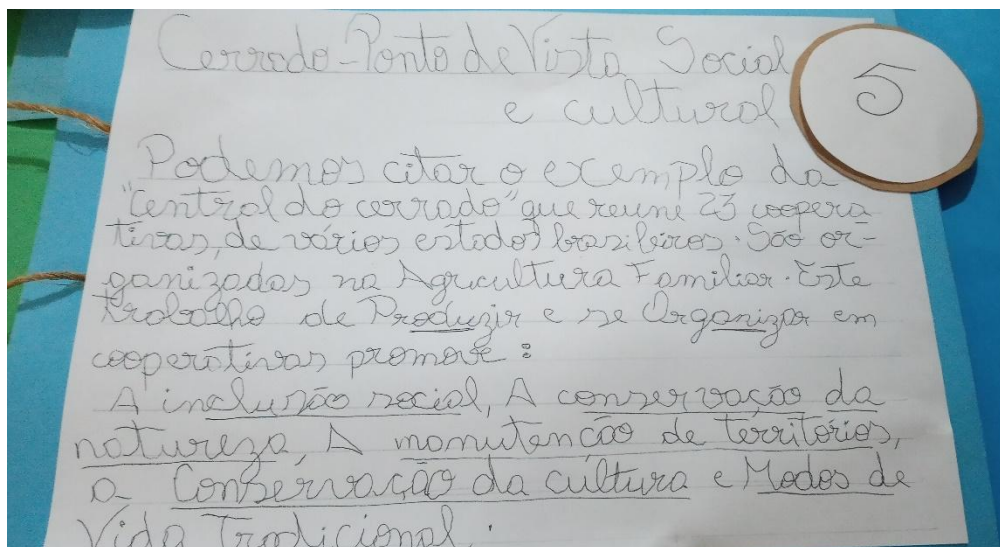 Cerrado-Ponto de Vista Social
e cultural
5
Podemos citar o exemplo da
"Central do cerrado" que reune 23 coopera
tivas, de vários estados brasileiros. São or-
ganizadas na Agricultura Familiar. Este
trabalho de Produzir e se Organizar em
cooperativas promove:
A inclusão social, A conservação da
natureza, A manutenção de territórios,
a Conservação da cultura e Modos de
Vida Tradicional.